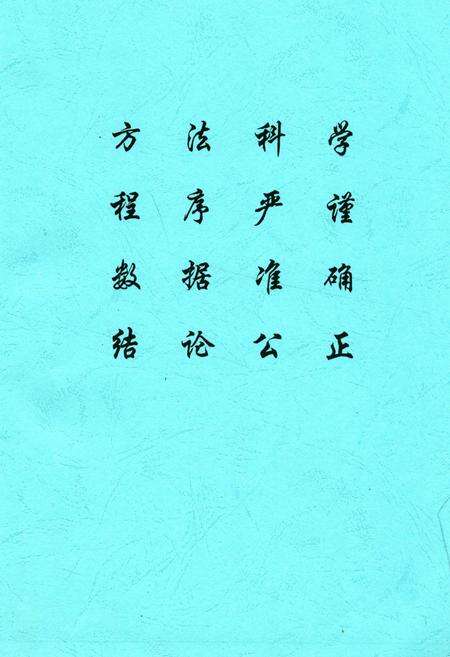 方法科学
程序严谨
数据准确
结论公正